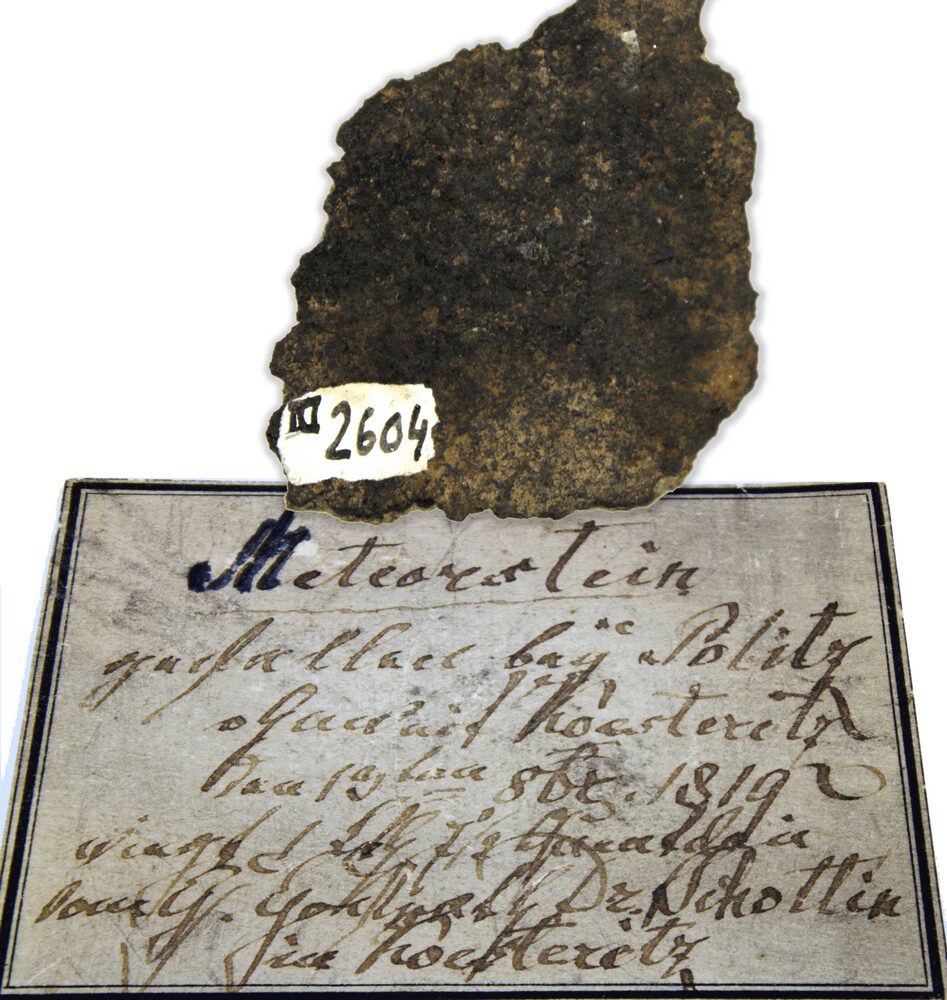 III 2604
Meteorstein
gefallen bey Politz
ohnweit Koesteritz
den 19ten 8br. 1819
wiegt
vom H. Dr. Schottin
in Koesteritz